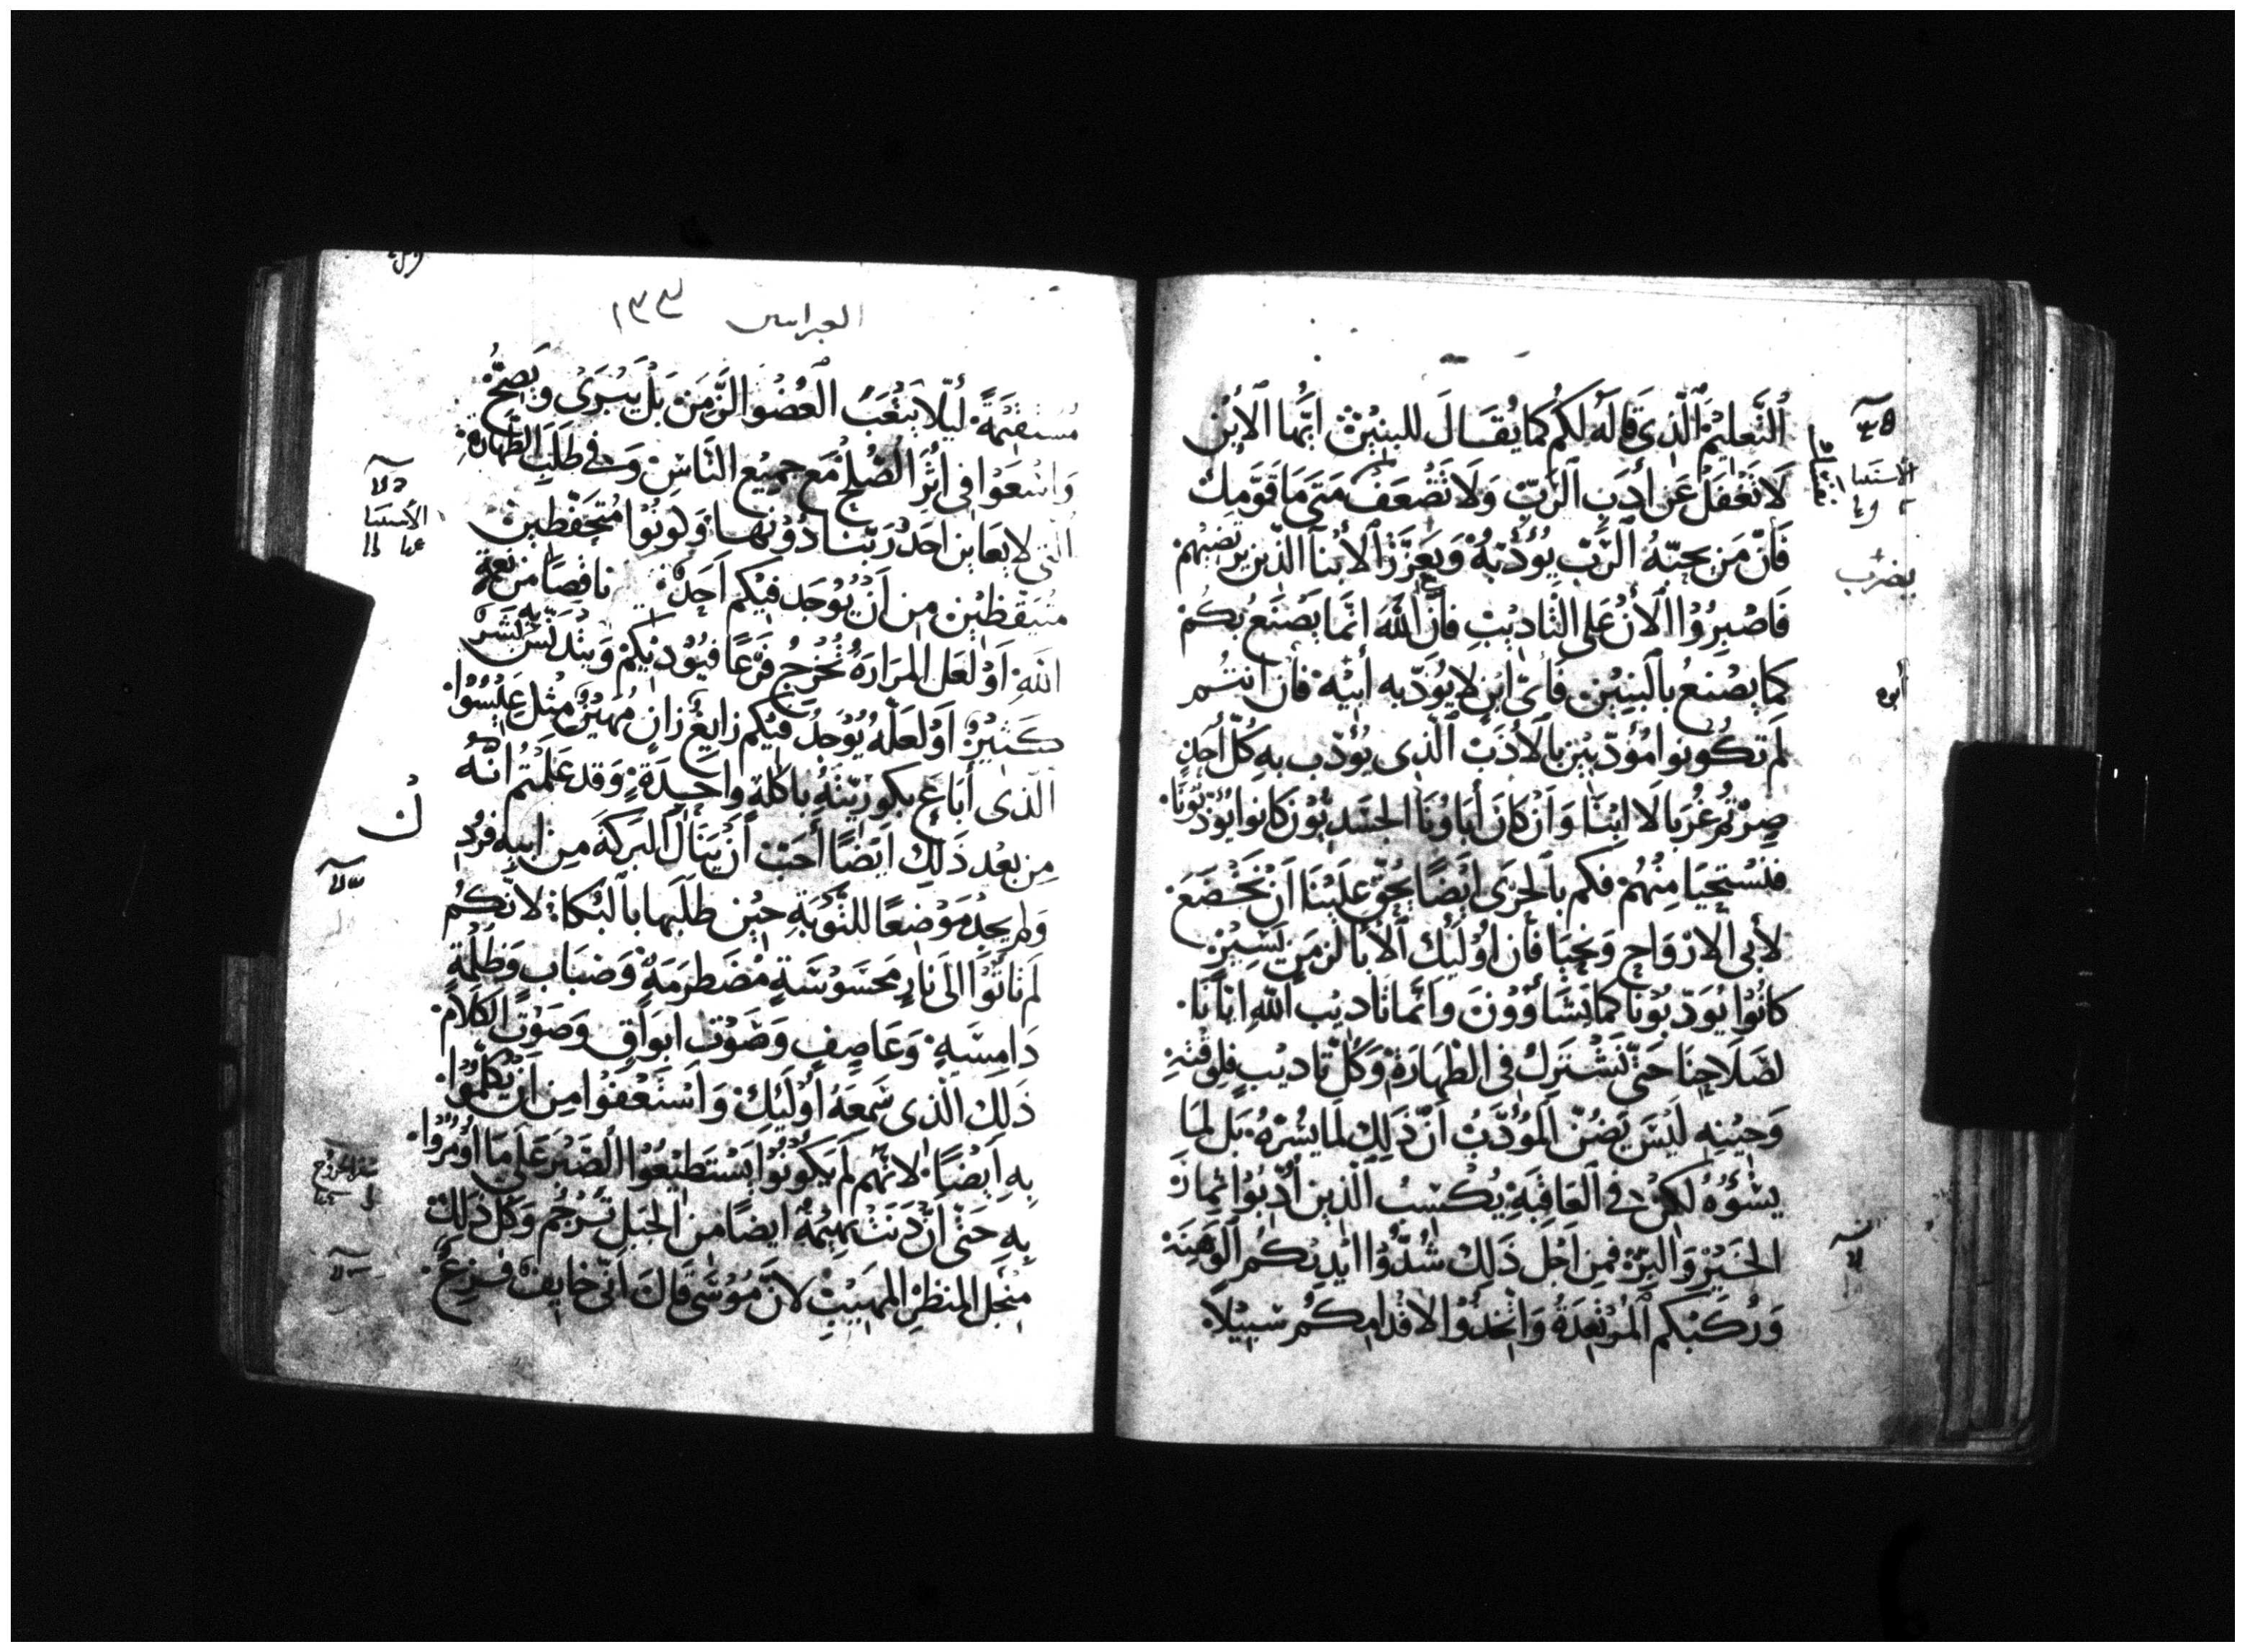 اَلتَّعليمَ الَّذِى قَالَهُ لَكُم كَمَا يُقَالَ للبنِيْنَ ايُّها الابْن
لَا تَغْفَلْ عَن أدَبِ الرَّبّ وَلَا تَضْعَفْ مَتى مَا قوَّمِكْ
فَانّ مَن يحبّهُ الرَّبّ يُؤدّبَهُ وَيَعزّز الابنا الذين يرتضيهم
فَاصْبِرُوْا الْانَ على التّاديْبِ فأنَّ اللّهَ انّما يَصْنَعُ بكُمْ
كما يصْنعُ بالبَنِيْن فَاىّ ابن لا يُودّبه أبيْه فأن انتُم
لَم تكُونوا مؤدّبيْن بالأدَبْ الّذِى يُؤدّب بهِ كلّ أحَدٍ
صِرْتُم غُرَبا لَا ابْنَا وَأنْ كانَ أباونَا الجسَديّون كانوا يُؤدّبُونَا
فنَسْتحِيَا مِنْهُمْ فكم بالحرَى ايْضًا يحقّ علَيْنَا انْ نَخْضَعَ
لأبى الارْوَاحِ وَنحيَا فأن اوْلئِكَ الأبا لزمَنٍ يَسِيْرٍ
كانُوْا يُودّبُوْنا كما يَشاؤُوْنَ وَانّما تَاديْب اللّهِ ايّانَا
لصَلَاحِنَا حَتّى نَشْترِك فى الطّهَارَةْ وَكلّ تاديْبٍ فى وقتهِ
وَحِيْنِه لَيْسَ يَضُنّ المؤُدَّبْ انّ ذَلِك لمَا يسُرّهُ بَل لمَا
يَسُؤُهُ لكِنْ فى العَاقبَةِ يُكْسِبُ الّذين أُدّبُوا ثِمَارَ
الخَيْرِ وَالبِرّ فمِن أجْل ذَلِكَ شُدُّوْا ايْديَكُم الوَهِنَة
وَرُكَبَكُم المُرْتعِدَةُ وَاتّخذُوْا لاقْدَامِكُم سَبِيْلاً
العبرانيين
مُسْتقيْمَةً لئلّا يَتْعَبُ العُضْوا الزّمَن بَلْ يَبْرَى وَيَصِحّ
وَاسْعَوْا فى أثَرَ الصُّلح مَع جميْع النّاسْ وَفى طَلَبِ الطّهارة
الّتى لا يعَاين احَدْ رَبّنا دُوْنهَا وَكونُوا مُتحَفّظين
مُتيَقظيْن مِن انْ يُوْجَد فيْكم احَدْ ناقصًا مِن نعمة
اللّهِ اوْ لعَل المَرَارَةُ تُخْرجُ فَرْعًا فيُؤذيْكم وَيتُدنّس به بَشَر
كثِيْر اَوْ لعلّهُ يُوْجَدُ فيْكم زايغٌ زان مُهيْن مِثل عَيسُوْا
الّذى أبَاعَ بكوريّتهِ بأكلة واحِدَةٍ وَقد علِمْتم انّهُ
مِن بعْد ذَلِك ايْضًا أحَبّ أنْ يَنَال البَرَكة مِن ابيهِ فرُد
وَلم يجدْ مَوْضِعًا للتّوْبَةِ حيْن طلَبها بالبُكاءِ لانّكم
لَم تَاتُوْا الى نارٍ مَحسُوْسَةٍ مضْطرمَةٍ وَضبَاب وَظلْمَةٍ
دَامِسَةٍ وَعَاصِفٍ وَصَوْتِ ابوَاقٍ وَصَوْتِ الكلام
ذَلِك الّذى سَمعَهُ أوْلَئِكَ وَاسْتَعْفَوْا مِن انْ يُكلّموا
بِهِ ايْضًا لانّهُم لَم يكوْنُوْا يَسْتطيْعُوْا الصّبْر عَلى مَا اُمُرُوْا
بِهِ حَتّى انْ دَنَتْ بهِيْمَةٌ ايضًا من الجَبَل تُرْجُم وَكان ذَلِك
مِنْجل المنظرِ المهيْبِ لانّ مُوْسَى قالَ انّى خايفْ فَزِعٌ